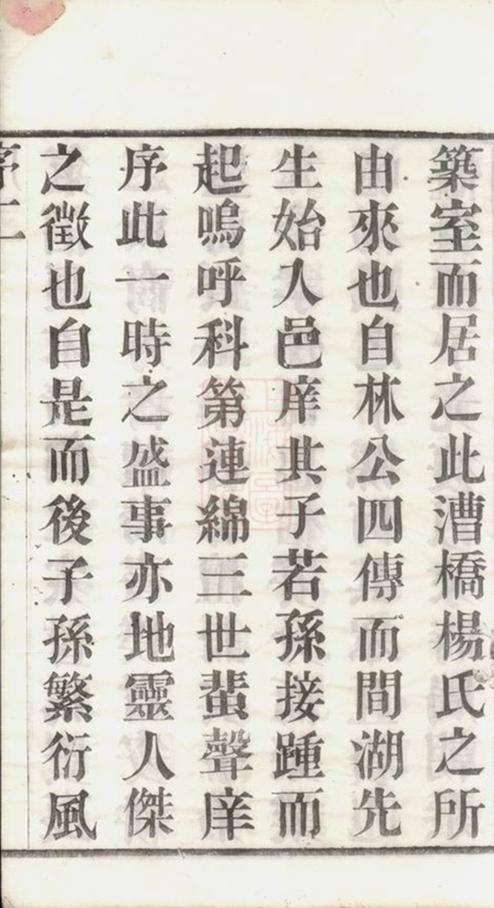 築室而居之此漕橋楊氏之所
由來也自林公四傳而間湖先
生始入邑庠其子若孫接踵而
起嗚呼科第連綿三世蜚聲庠
序此一時之盛事亦地靈人傑
之徵也自是而後子孫繁衍風
序二